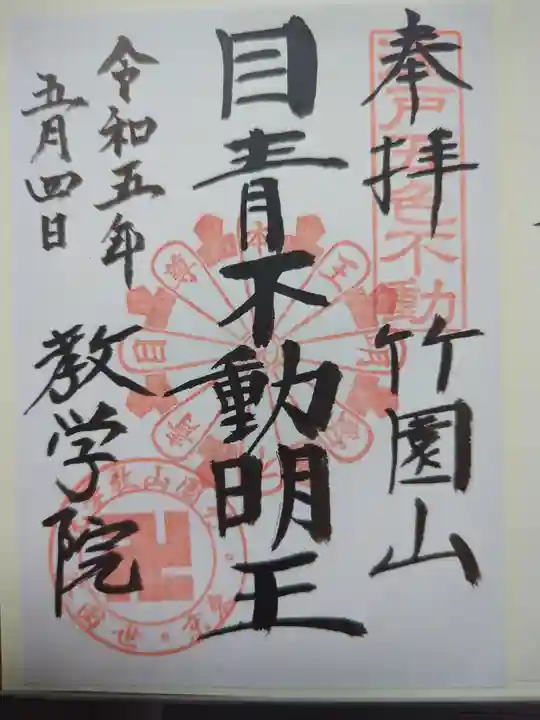 奉拝
竹園山
江戸五色不動
目青不動明王
令和五年
五月四日
教学院